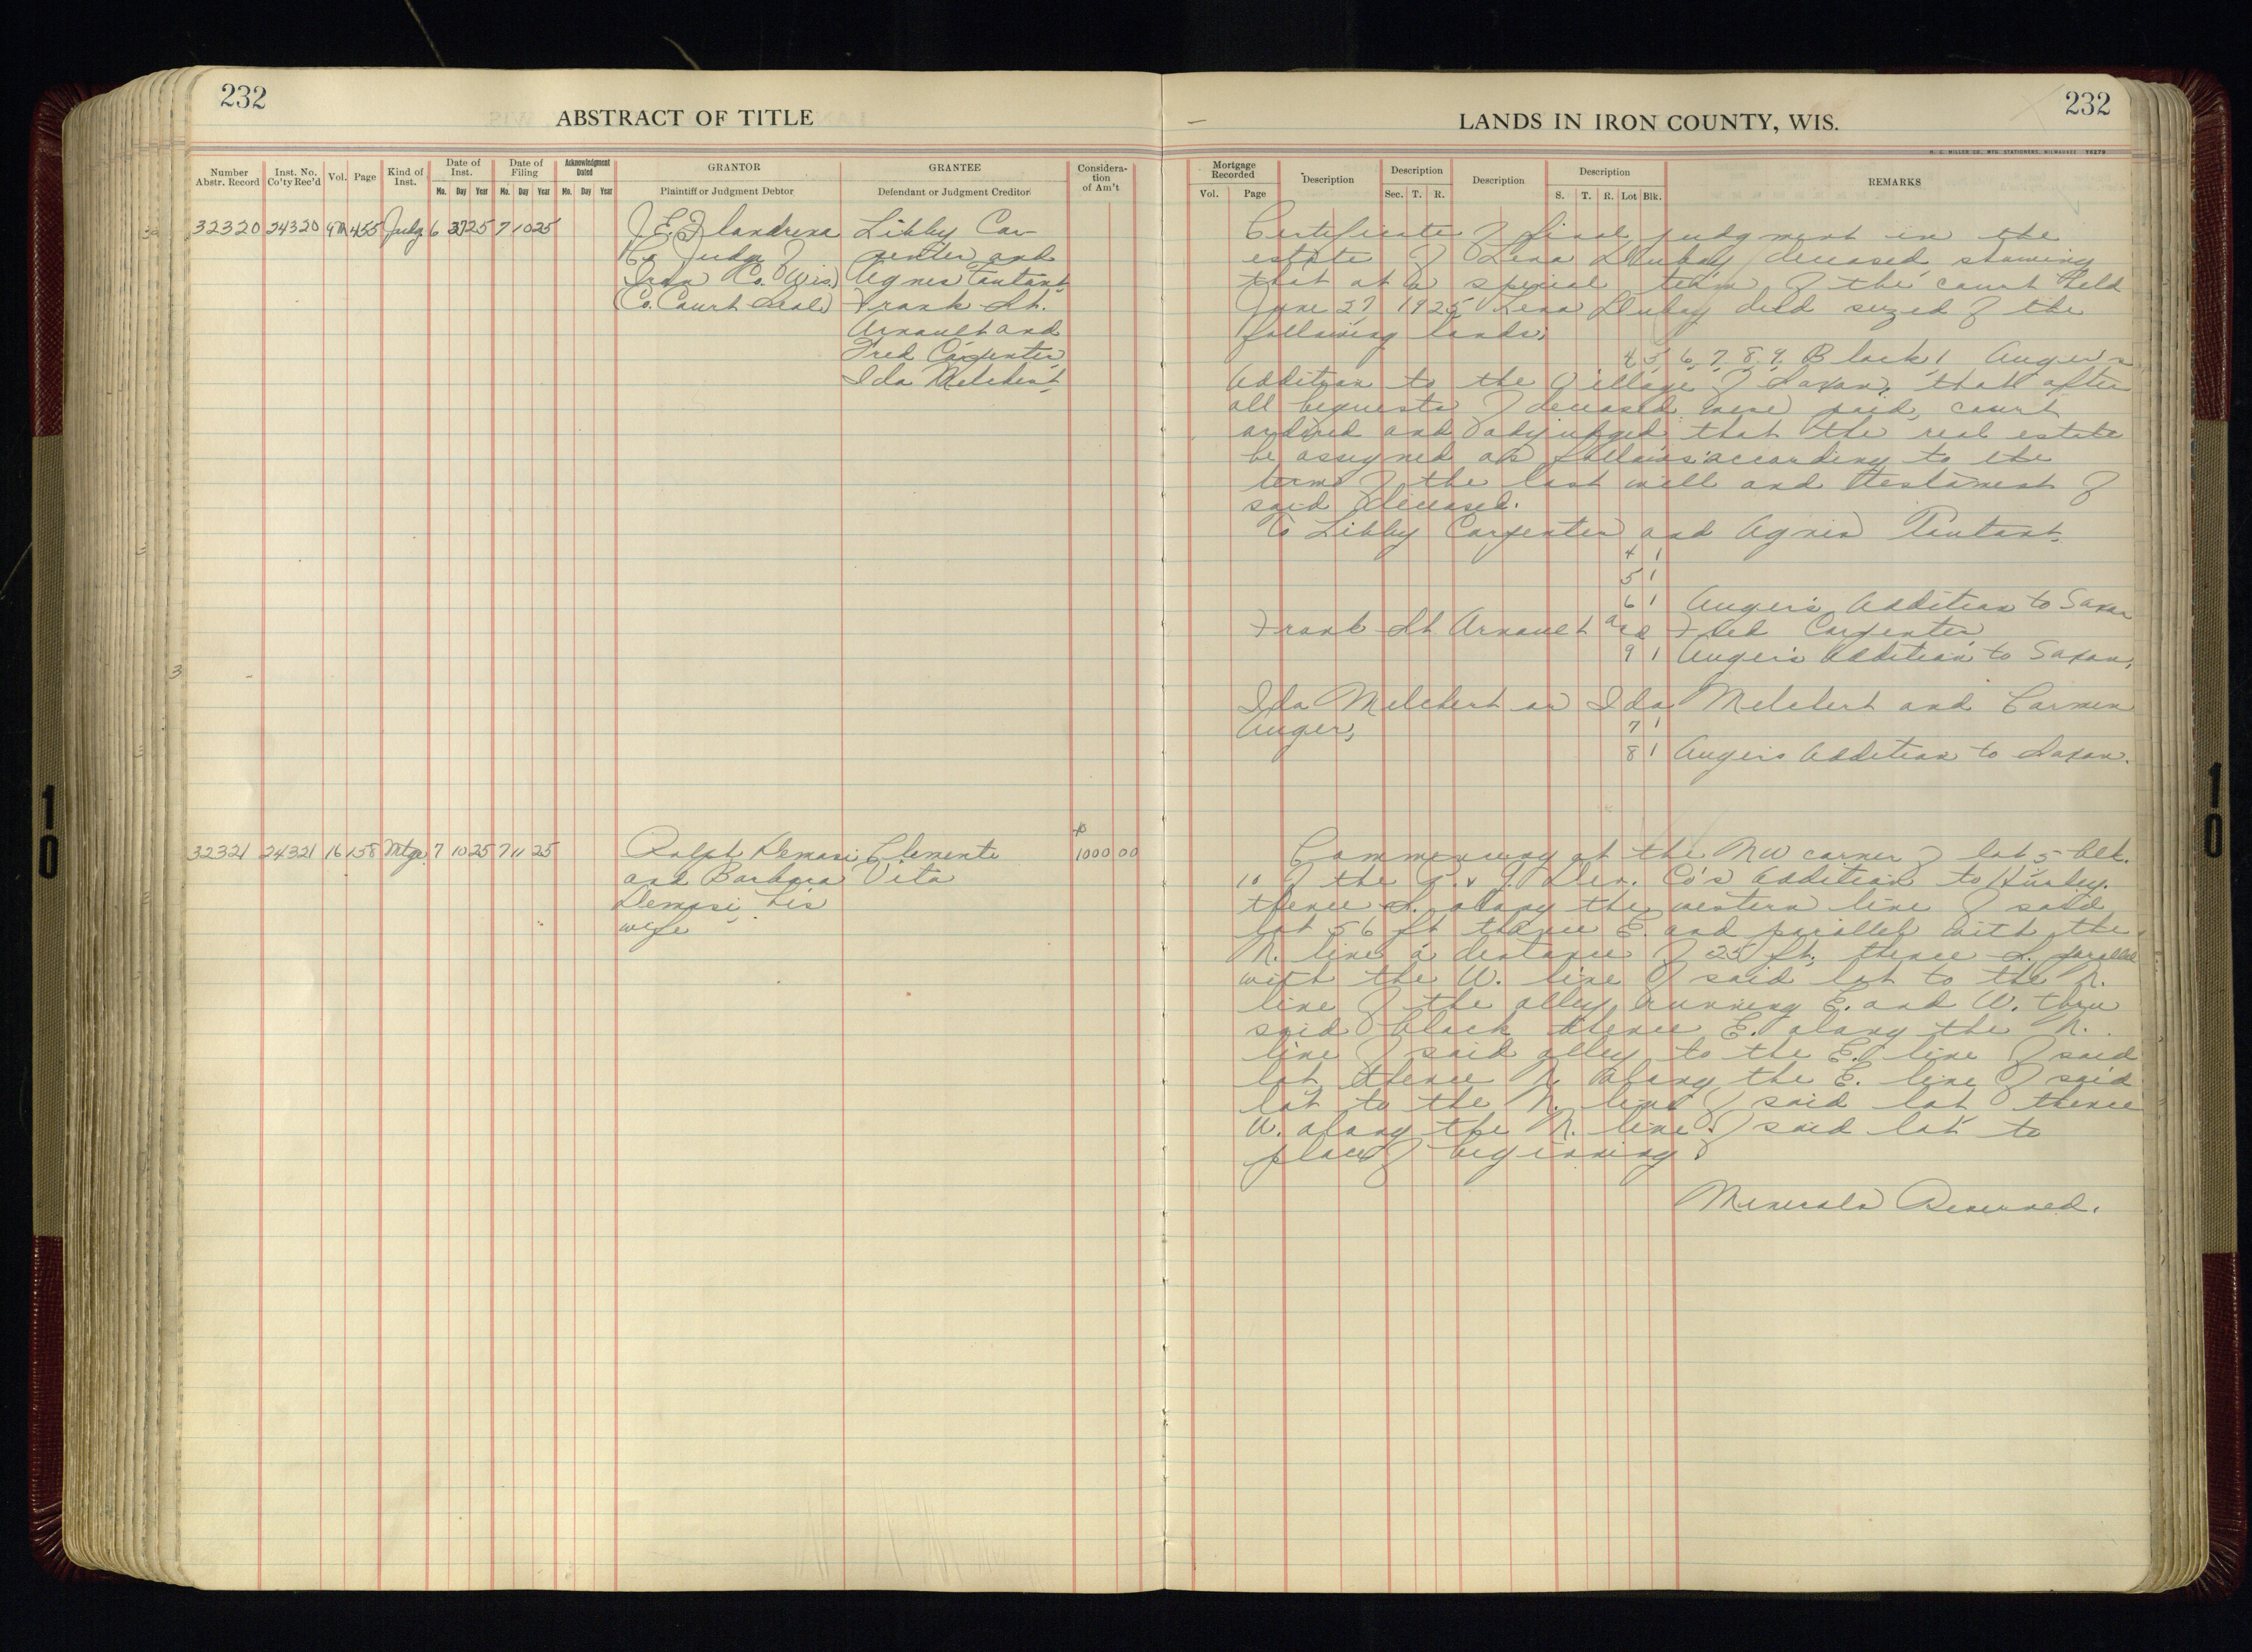 232
ABSTRACT OF TITLE
Number Abstr. Record
Inst. No. Co'ty Rec'd
Vol.
Page
Kind of Inst.
Date of Inst.
Mo. Day Year
Date of Filing
Mo. Day Year
Acknowledgment Dated
Mo. Day Year
GRANTOR
Plaintiff or Judgment Debtor
GRANTEE
Defendant or Judgment Creditor
Considera-
tion
of Am't
32320 24320 9M 455 Judg 6 27 25 7 10 25
J. E. Flandrena
Co Judge of
Iron Co. Wis.
(Co. Court Seal)
Libby Car-
penter and
Agnes Tantant
Frank St.
Arnault and
Fred Carpenter
Ida Melchert
32321 24321 16 158 Mtge. 7 10 25 7 11 25
Ralph Demasi
and Barbara
Demasi, his
wife
Clemente
Vita
$
1000 00
LANDS IN IRON COUNTY, WIS.
232
H. C. MILLER CO., MFG. STATIONERS, MILWAUKEE Y6279
Mortgage Recorded
Vol. Page
Description
Description
Sec. T. R.
Description
Description
S. T. R. Lot Blk.
REMARKS
Certificate of final judgment in the
estate of Lena Dubay deceased, showing
that at a special term of the court held
June 27 1925 Lena Dubay died seized of the
following lands;
4, 5, 6, 7, 8, 9, Block 1 Auger's
Addition to the Village of Saxon, that after
all bequests of deceased were paid, court
ordered and adjudged that the real estate
be assigned as follows according to the
terms of the last will and testament of
said deceased.
To Libby Carpenter and Agnes Tantant.
4 1
5 1
6 1 Auger's Addition to Saxon
Frank St Arnault and Fred Carpenter
9 1 Auger's Addition to Saxon.
Ida Melchert or Ida Melchert and Carmen
Auger,
7 1
8 1 Auger's Addition to Saxon.
Commencing at the NW corner of lot 5 blk.
10 of the Dev. Co's Addition to Hurley.
thence S. along the western line of said
lot 56 ft thence E. and parallel with the
N. line a distance of 25 ft, thence S. parallel
with the W. line of said lot to the N.
line of the alley running E. and W. thru
said block thence E. along the N.
line of said alley to the E. line of said
lot thence N. along the E. line of said
lot to the N. line of said lot thence
W. along the N. line of said lot to
place of beginning.
Minerals Reserved.
10
10